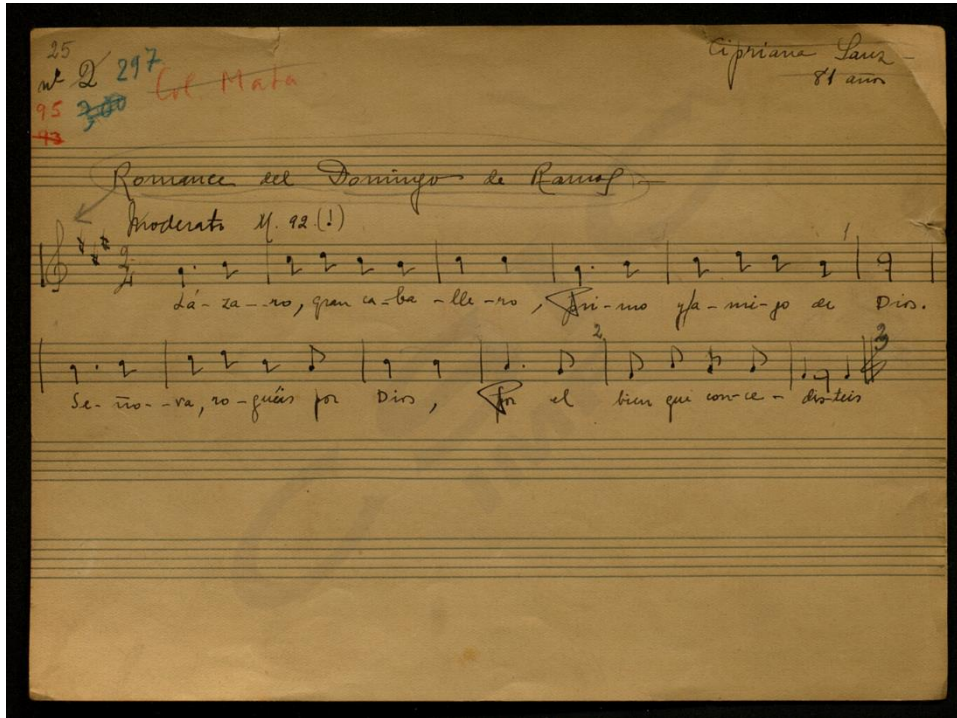 25
nº 2 297 Col Mata
95 300
93
Cipriana Sanz
81 años
Romance del Domingo de Ramos
Moderato M. 92 (!)
2/4
1
Lá-za-ro, gran ca-ba-lle-ro, Pri-mo y a-mi-go de Dios.
2 3
Se-ño-ra, ro-guéis por Dios, Por el bien que con-ce-dis-teis